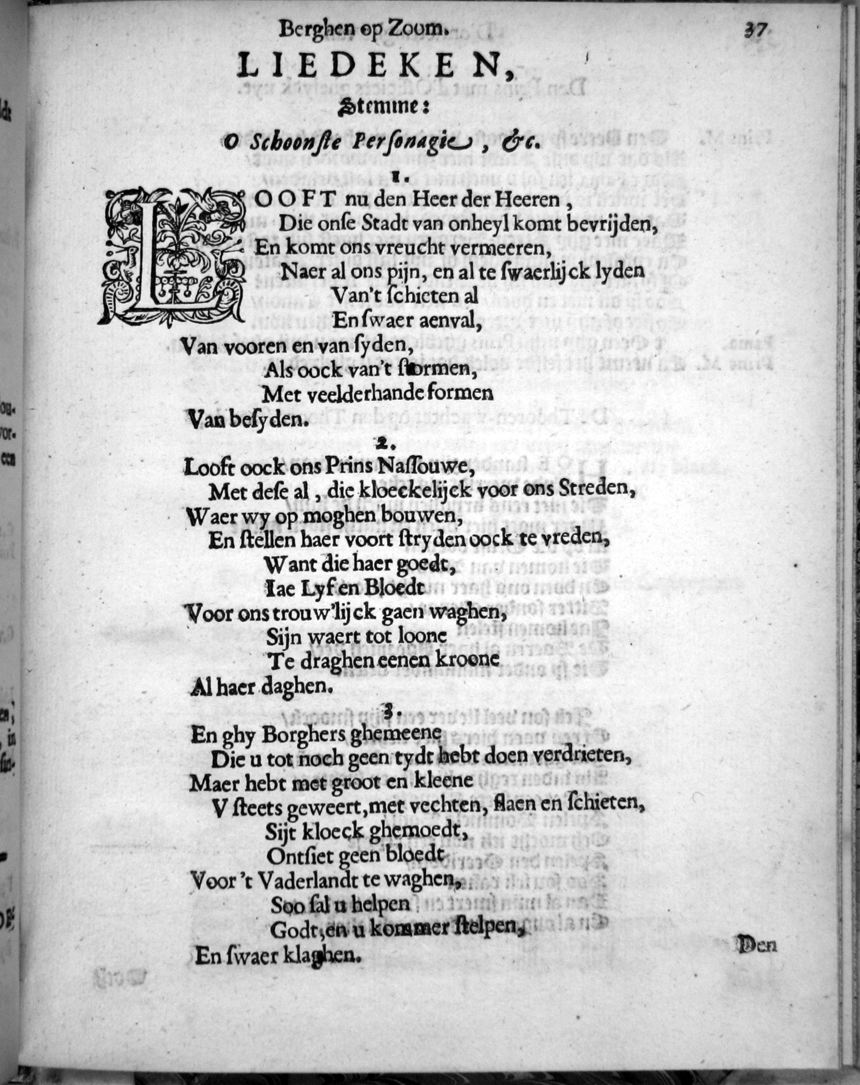 Berghen op Zoom. 37
LIEDEKEN,
Stemme:
O Schoonſte Perſonagie, &c.
1.
LOOFT nu den Heer der Heeren,
Die onſe Stadt van onheyl komt bevrijden,
En komt ons vreucht vermeeren,
Naer al ons pijn, en al te ſwaerlijck lyden
Van't ſchieten al
En ſwaer aenval,
Van vooren en van ſyden,
Als oock van't ſtormen,
Met veelderhande formen
Van beſyden.
2.
Looft oock ons Prins Naſſouwe,
Met deſe al, die kloeckelijck voor ons Streden,
Waer wy op moghen bouwen,
En ſtellen haer voort ſtryden oock te vreden,
Want die haer goedt,
Iae Lyf en Bloedt
Voor ons trouw'lijck gaen waghen,
Sijn waert tot loone
Te draghen eenen kroone
Al haer daghen.
3.
En ghy Borghers ghemeene
Die u tot noch geen tydt hebt doen verdrieten,
Maer hebt met groot en kleene
V ſteets geweert, met vechten, ſlaen en ſchieten,
Sijt kloeck ghemoedt,
Ontſiet geen bloedt
Voor 't Vaderlandt te waghen,
Soo ſal u helpen
Godt, en u kommer ſtelpen,
En ſwaer klaghen.
Den